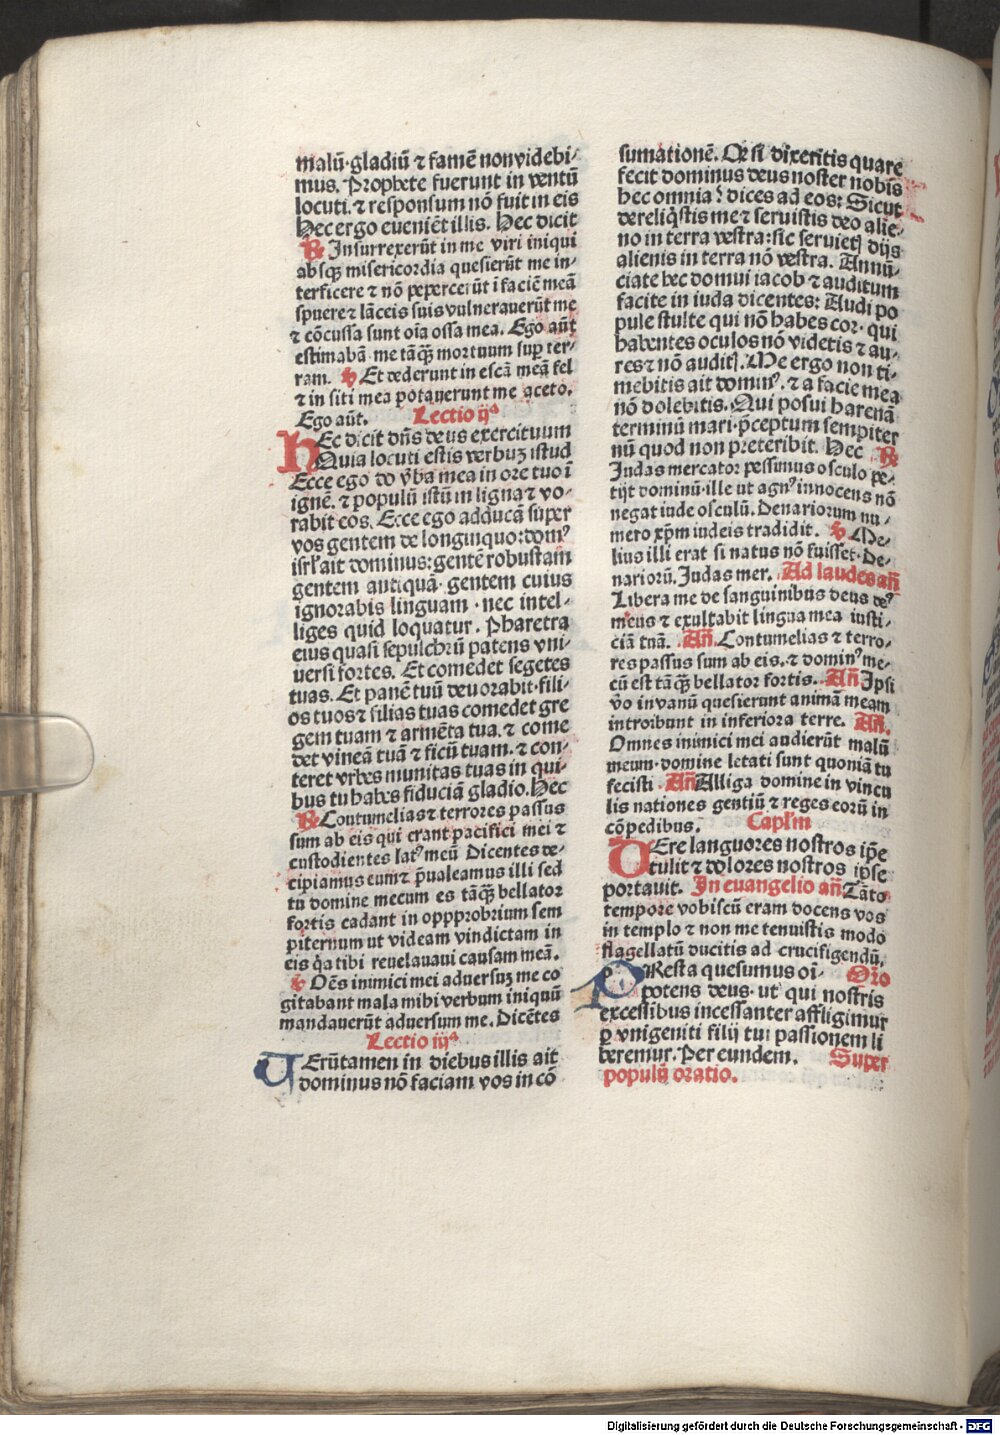 malū·gladiū ⁊ famē non videbi⸗
mus. Prophete fuerunt in ventū
locuti. ⁊ responsum nō fuit in eis
Hec ergo eveniēt illis. Hec dicit
℟ Insurrexerūt in me viri iniqui
absqꝫ misericordia quesierūt me in⸗
terficere ⁊ nō pepercerūt ī faciē meā
spuere ⁊ lāceis suis vulneraverūt me
⁊ cōcussa sunt oīa ossa mea. Ego aūt
estimabā me tāqꝫ mortuum sup ter⸗
ram. ℣ Et dederunt in escā meā fel
⁊ in siti mea potaverunt me aceto.
Ego aūt. Lectio ijª
HEc dicit dn̄s deus exercituum
Quia locuti estis verbuꝫ istud
Ecce ego do v̄ba mea in ore tuo ī
ignē. ⁊ populū istū in ligna ⁊ vo⸗
rabit eos. Ecce ego adducā super
vos gentem de longinquo:domꝰ
isrl' ait dominus: gentē robustam
gentem antiquā· gentem cuius
ignorabis linguam· nec intel⸗
liges quid loquatur. Pharetra
eius quasi sepulchrū patens vni⸗
uersi fortes. Et comedet segetes
tuas. Et panē tuū devorabit·fili⸗
os tuos ⁊ filias tuas comedet gre
gem tuam ⁊ armēta tua. ⁊ come
det vineā tuā ⁊ ficū tuam. ⁊ con⸗
teret vrbes munitas tuas in qui⸗
bus tu habes fiduciā gladio. Hec
℟ Contumelias ⁊ terrores passus
sum ab eis qui erant pacifici mei ⁊
custodientes latꝰ meū Dicentes de⸗
cipiamus eum ⁊ p̄ualeamus illi sed
tu domine mecum es tāqꝫ bellator
fortis cadant in oppprobrium sem
piternum ut videam vindictam in
eis q̄a tibi reuelavi causam meā.
℣ Oēs inimici mei adversuꝫ me co
gitabant mala mihi verbum iniquū
mandaverūt adversum me. Dicētes
Lectio iijª
VErūtamen in diebus illis ait
dominus nō faciam vos in cō
sumationē. Qe si dixeritis quare
fecit dominus deus noster nobis
hec omnia? dices ad eos: Sicut
dereliq̄stis me ⁊ servistis deo alie⸗
no in terra vestra: sic serviet] dijs
alienis in terra nō vestra. Annū⸗
ciate hec domui iacob ⁊ auditum
facite in iuda dicentes: Audi po
pule stulte qui nō habes cor· qui
habentes oculos nō videtis ⁊ au⸗
res ⁊ nō audit]. Me ergo non ti⸗
mebitis ait dominꝰ. ⁊ a facie mea
nō dolebitis. Qui posui harenā
terminū mari·p̄ceptum sempiter
nū quod non preteribit. Hec ℟
Judas mercator pessimus osculo pe⸗
tijt dominū·ille ut agnꝰ innocens nō
negat iude osculū. Denariorum nu⸗
mero xp̄m iudeis tradidit. ℣ Me⸗
lius illi erat si natus nō fuisset·De⸗
nariorū. Judas mer. Ad laudes an̄
Libera me de sanguinibus deus deꝰ
meus ⁊ exultabit lingua mea iusti⸗
ciā tuā. An̄. Contumelias ⁊ terro⸗
res passus sum ab eis. ⁊ dominꝰ me⸗
cū est tāqꝫ bellator fortis. An̄ Ipsi
v̄o in vanū quesierunt animā meam
introibunt in inferiora terre. An̄.
Omnes inimici mei audierūt malū
meum·domine letati sunt quoniā tu
fecisti An̄ Alliga domine in vincu
lis nationes gentiū ⁊ reges eorū in
cōpedibus. Capl'm
VEre languores nostros ip̄e
tulit ⁊ dolores nostros ipse
portavit. In evangelio an̄ Tāto
tempore vobiscū eram docens vos
in templo ⁊ non me tenuistis modo
flagellatū ducitis ad crucifigendū.
PResta quesumus oī· Or̄o
potens deus· ut qui nostris
excessibus incessanter affligimur
ꝑ vnigeniti filij tui passionem li
beremur. Per eundem. Super
populū oratio.
Digitalisierung gefördert durch die Deutsche Forschungsgemeinschaft - DFG